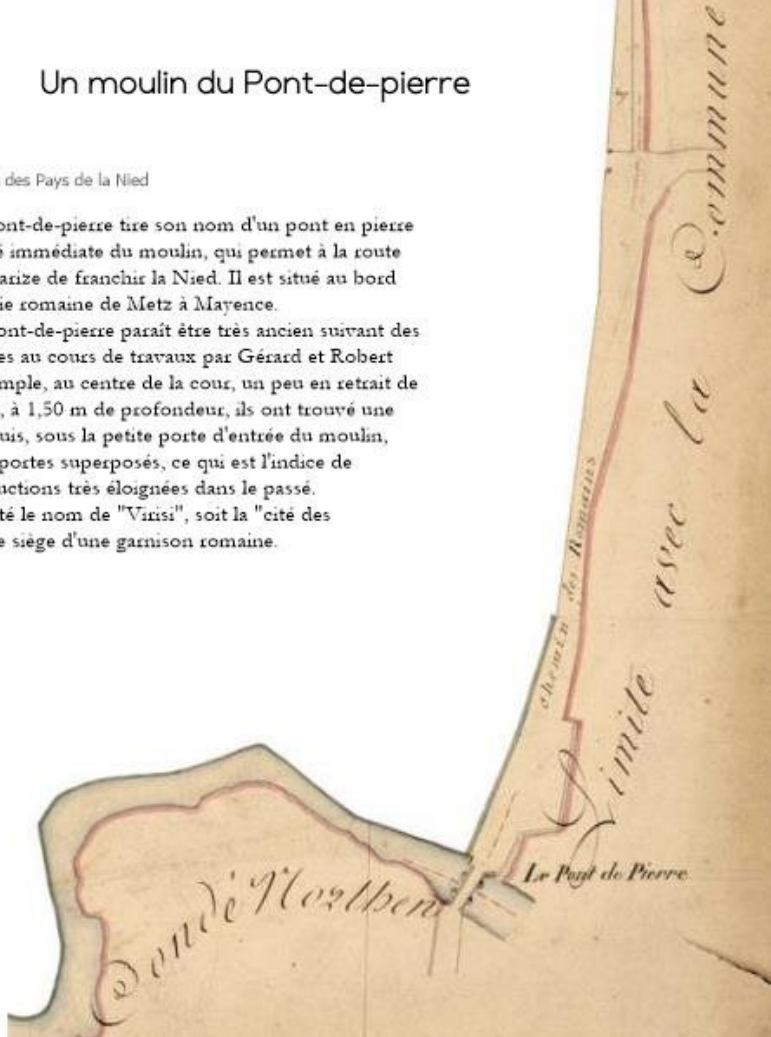 Un moulin du Pont-de-pierre
des Pays de la Nied
ont-de-pierre tire son nom d'un pont en pierre
é immédiate du moulin, qui permet à la route
arize de franchir la Nied. Il est situé au bord
ie romaine de Metz à Mayence.
ont-de-pierre paraît être très ancien suivant des
es au cours de travaux par Gérard et Robert
mple, au centre de la cour, un peu en retrait de
, à 1,50 m de profondeur, ils ont trouvé une
uis, sous la petite porte d'entrée du moulin,
portes superposés, ce qui est l'indice de
uctions très éloignées dans le passé.
té le nom de "Virisi", soit la "cité des
e siège d'une garnison romaine.
Limite avec la Commune
chemin des Romains
Le Pont de Pierre
Condé Northen